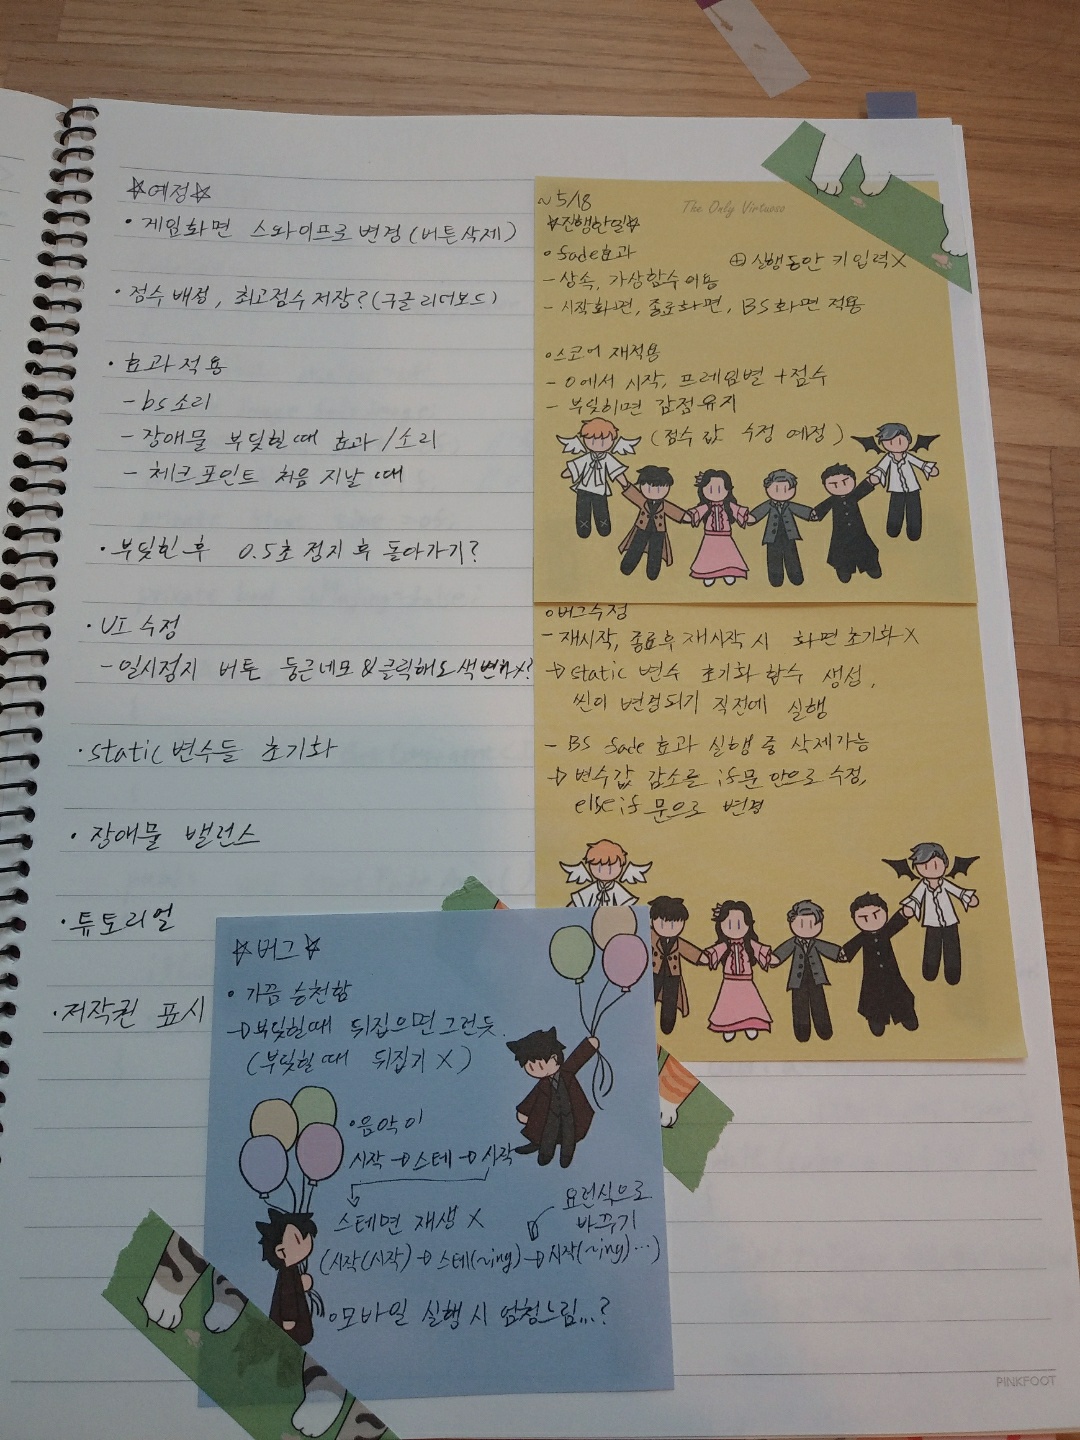 ☆예정☆
• 게임화면 스와이프로 변경 (버튼삭제)
• 점수 배정, 최고점수 저장? (구글 리더보드)
• 효과 적용
- bs 소리
- 장애물 부딪힐 때 효과 / 소리
- 체크포인트 처음 지날 때
• 부딪힌 후 0.5초 정지 후 돌아가기?
• UI 수정
- 일시정지 버튼 둥근네모 & 클릭해도 색변화X?
• static 변수들 초기화
• 장애물 밸런스
• 튜토리얼
• 저작권 표시
~5/18
The Only Virtuoso
☆진행한일☆
• fade효과
⊕ 실행동안 키입력X
- 상속, 가상함수 이용
- 시작화면, 종료화면, BS화면 적용
• 스코어 재적용
- 0에서 시작, 프레임별 +점수
- 부딪히면 감점유지
(점수 값 수정 예정)
• 버그수정
- 재시작, 종료후 재시작 시 화면 초기화X
→ static 변수 초기화 함수 생성,
씬이 변경되기 직전에 실행
- BS fade 효과 실행 중 삭제가능
→ 변수값 감소를 if문 안으로 수정,
else if 문으로 변경
☆버그☆
• 가끔 승천함
→ 부딪힐때 뒤집으면 그런듯.
(부딪힐 때 뒤집기 X)
• 음악이
시작 → 스테 → 시작
스테면 재생 X
요런식으로
바꾸기
(시작(시작) → 스테(~ing) → 시작(~ing)...)
• 모바일 실행 시 엄청느림...?
PINKFOOT